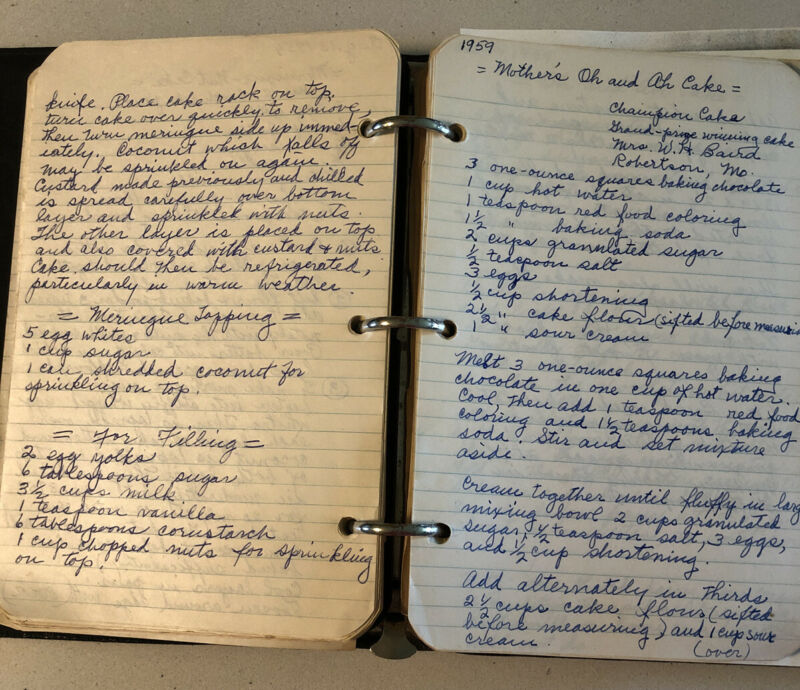 knife. Place cake rack on top,
turn cake over quickly, to remove,
then turn meringue side up immed-
iately. Coconut which falls off
may be sprinkled on again.
Custard made previously and chilled
is spread carefully over bottom
layer and sprinkled with nuts.
The other layer is placed on top
and also covered with custard & nuts
Cake should then be refrigerated,
particularly in warm weather.
= Meringue Topping =
5 egg whites
1 cup sugar
1 can shredded coconut for
sprinkling on top.
= For Filling =
2 egg yolks
6 tablespoons sugar
3 1/2 cups milk
1 teaspoon vanilla
6 tablespoons cornstarch
1 cup chopped nuts for sprinkling
on top.
1959
= Mother's Oh and Ah Cake =
Champion Cake
Grand-prize winning cake
Mrs. W. H. Baird
Robertson, Mo.
3 one-ounce squares baking chocolate
1 cup hot water
1 teaspoon red food coloring
1 1/2 " baking soda
2 cups granulated sugar
1/2 teaspoon salt
3 eggs
1/2 cup shortening
2 1/2 " cake flour (sifted before measurin
1 " sour cream
Melt 3 one-ounce squares baking
chocolate in one cup of hot water.
Cool. Then add 1 teaspoon red food
coloring and 1 1/2 teaspoons baking
soda. Stir and set mixture
aside.
Cream together until fluffy in larg
mixing bowl 2 cups granulated
sugar, 1/2 teaspoon salt, 3 eggs,
and 1/2 cup shortening.
Add alternately in thirds
2 1/2 cups cake flour (sifted
before measuring) and 1 cup sour
cream. (over)